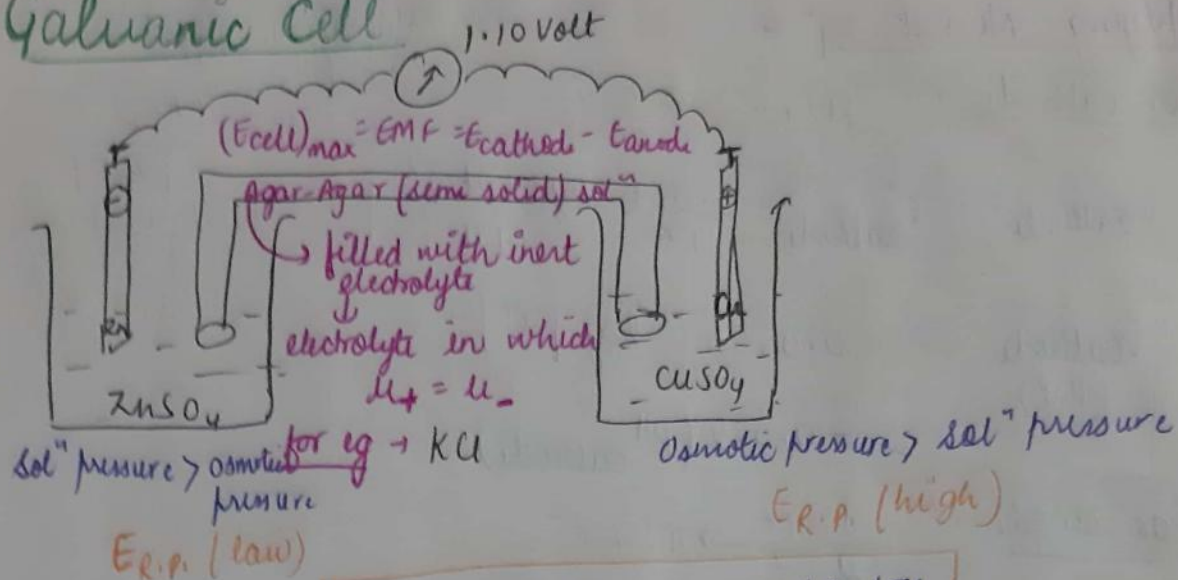 Galvanic Cell
1.10 Volt
(Ecell)max = EMF = Ecathod - Eanode
Agar-Agar (semi solid) solⁿ
filled with inert
electrolyte
electrolyte in which
μ₊ = μ₋
for eg → KCl
Zn
ZnSO₄
solⁿ pressure > osmotic
pressure
E_R.P. (law)
Cu
CuSO₄
Osmotic pressure > solⁿ pressure
E_R.P. (high)